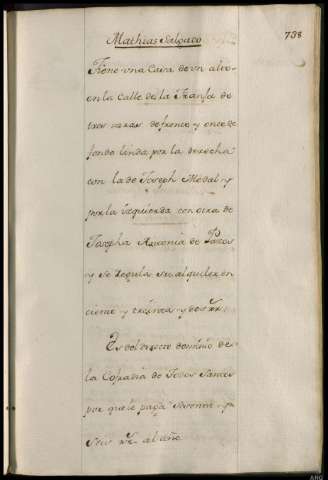 Mathias Salgado
738
Tiene vna Casa de vn alto
en la Calle de la Franja de
tres varas de frente y once de
fondo linda por la derecha
con la de Joseph Medal y
por la izquierda con otra de
Josepha Antonia de Pazos
y se regula su alquiler en
ciento y treinta y dos rr.
Es del directo dominio de
la Cofradia de Todos Santos
por que le paga sesenta y
seis rr. al año
ARG